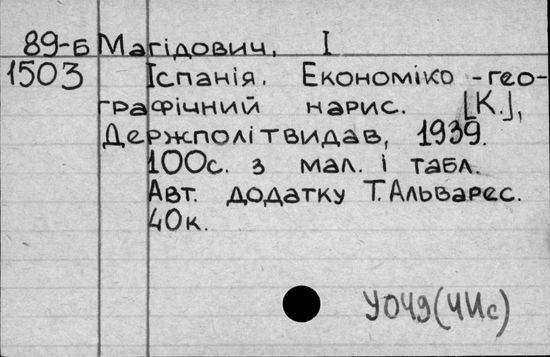 89-Б Магідович, І
1503 Іспанія. Економіко-гео-
графічний нарис. [К.],
Держполітвидав, 1939.
100с. з мал. і табл.
Авт. додатку Т. Альварес.
40к.
У049(4Ис)